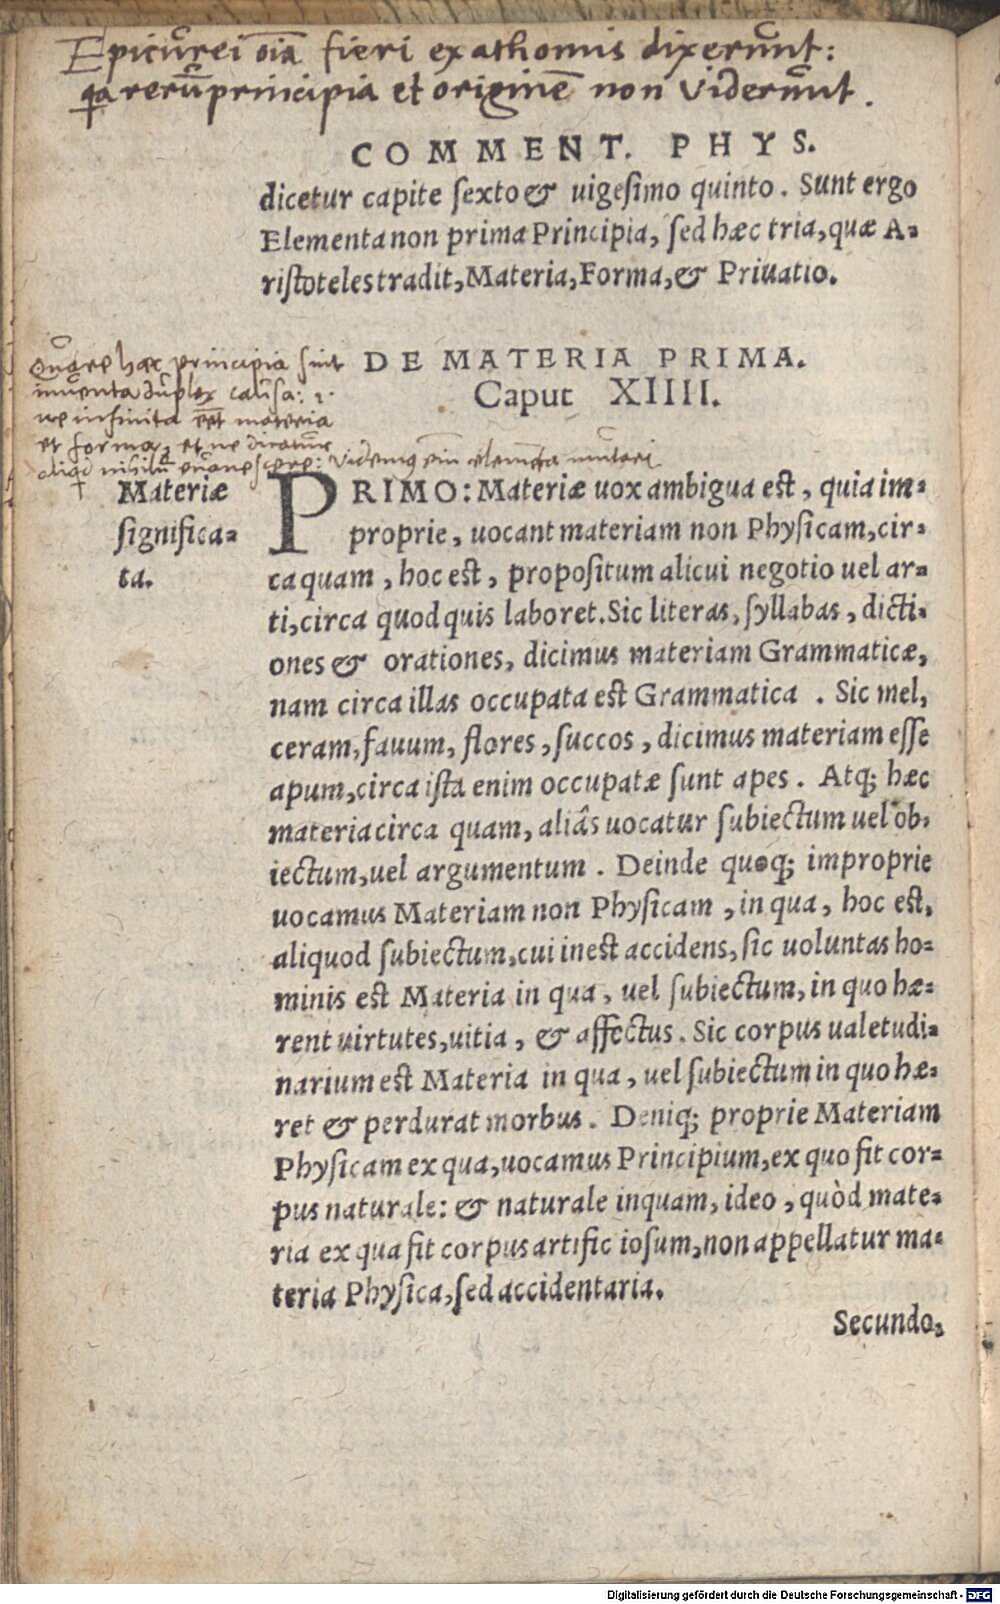 Epicurei oīa fieri ex athomis dixerunt:
qa rerū principia et originē non viderunt.
COMMENT. PHYS.
dicetur capite ſexto & uigeſimo quinto. Sunt ergo
Elementa non prima Principia, ſed hæc tria, quæ A-
riſtoteles tradit, Materia, Forma, & Priuatio.
Quare hæc principia sint
inventa duplex causa: 1.
ne infinita eēt materia
et forma, et ne dicatur
aliqd nihilū evanescere: videmus eīm elementa mutari
DE MATERIA PRIMA.
Caput XIIII.
Materiæ
ſignifica-
ta.
PRIMO: Materiæ uox ambigua eſt, quia im-
proprie, uocant materiam non Phyſicam, cir-
ca quam, hoc eſt, propoſitum alicui negotio uel ar-
ti, circa quod quis laboret. Sic literas, ſyllabas, dicti-
ones & orationes, dicimus materiam Grammaticæ,
nam circa illas occupata eſt Grammatica. Sic mel,
ceram, fauum, flores, ſuccos, dicimus materiam eſſe
apum, circa iſta enim occupatæ ſunt apes. Atq; hæc
materia circa quam, aliâs uocatur ſubiectum uel ob-
iectum, uel argumentum. Deinde quoq; improprie
uocamus Materiam non Phyſicam, in qua, hoc eſt,
aliquod ſubiectum, cui ineſt accidens, ſic uoluntas ho-
minis eſt Materia in qua, uel ſubiectum, in quo hæ-
rent uirtutes, uitia, & affectus. Sic corpus ualetudi-
narium eſt Materia in qua, uel ſubiectum in quo hæ-
ret & perdurat morbus. Deniq; proprie Materiam
Phyſicam ex qua, uocamus Principium, ex quo fit cor-
pus naturale: & naturale inquam, ideo, quòd mate-
ria ex qua fit corpus artificioſum, non appellatur ma-
teria Phyſica, ſed accidentaria.
Secundo,
Digitalisierung gefördert durch die Deutsche Forschungsgemeinschaft - DFG